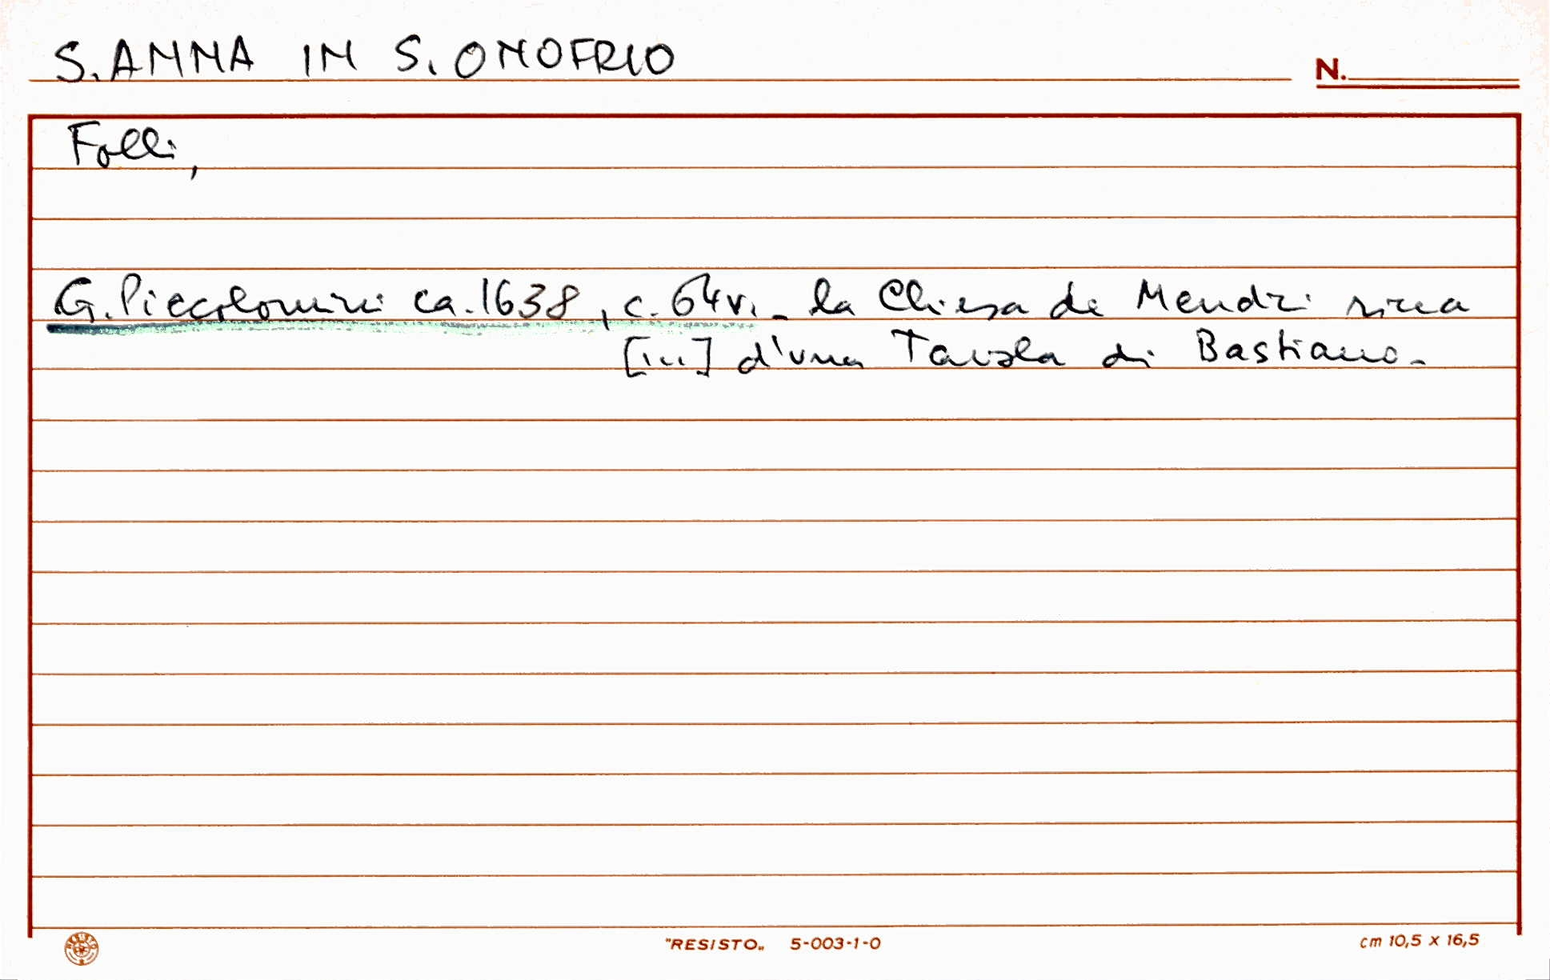 S. ANNA IN S. ONOFRIO
N.
Folli,
G. Piccolomini ca. 1638, c. 64v. - la Chiesa de Mendici ricca
[...] d'una Tavola di Bastiano.
RESISTO
"RESISTO„ 5-003-1-0
cm 10,5 x 16,5